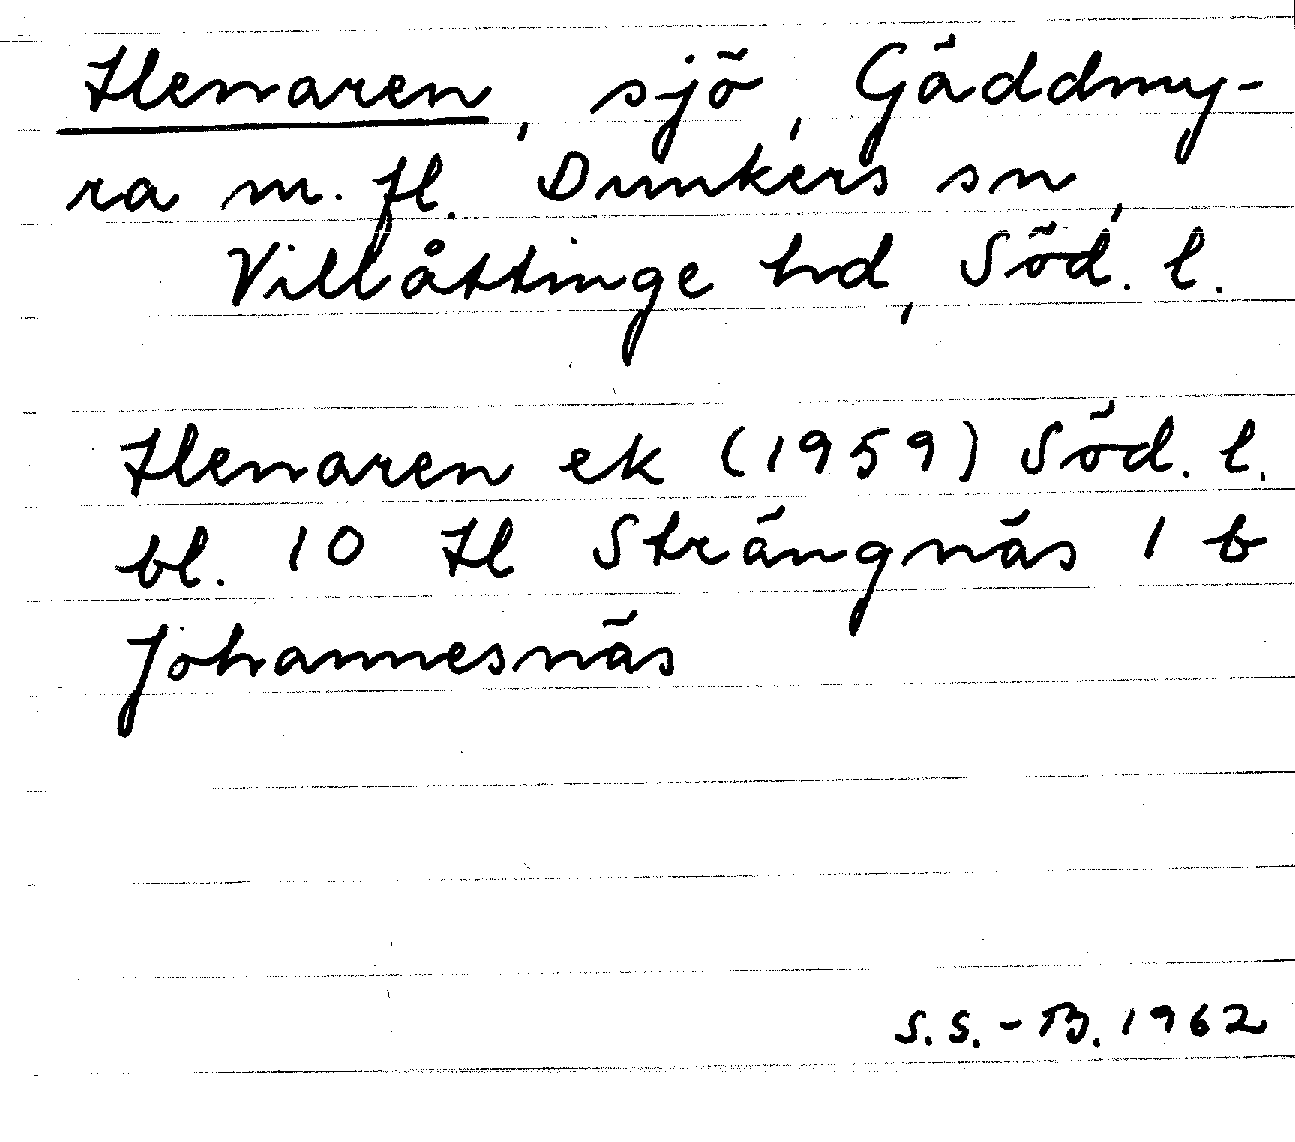 Henaren, sjö, Gäddmy-
ra m. fl. Dunkers sn,
Villåttinge hd, Söd. l.
Henaren ek (1959) Söd. l.
bl. 10 H Strängnäs 1 b
Johannesnäs
S. S. - B. 1962